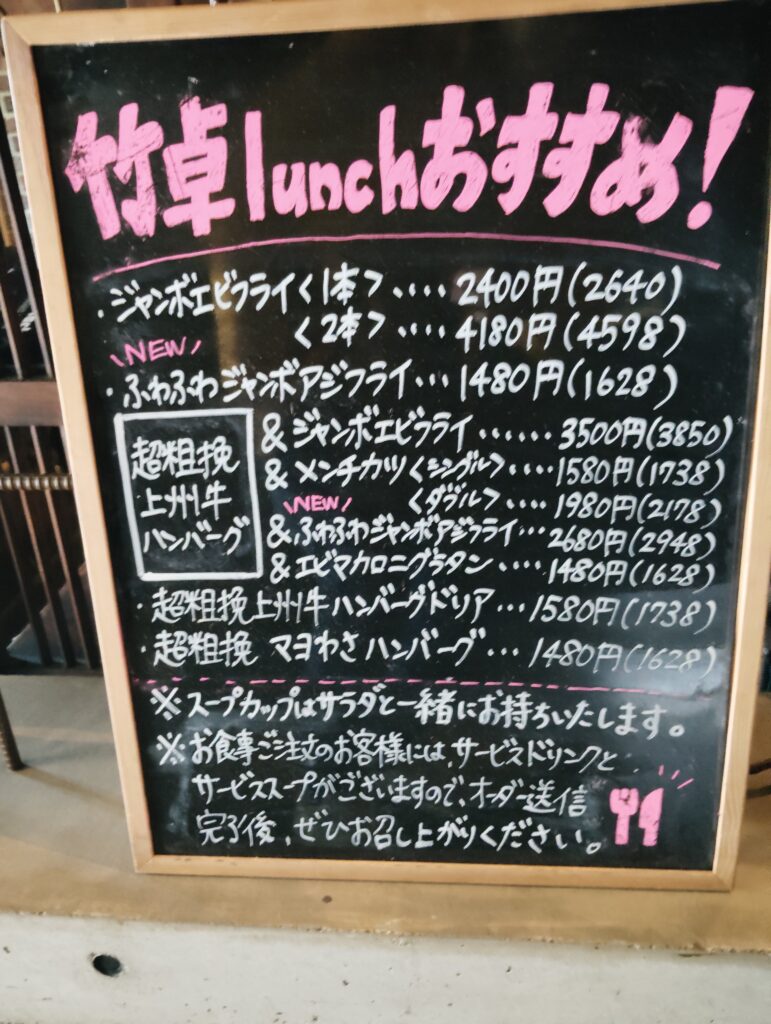 竹卓lunchおすすめ!
・ジャンボエビフライ〈1本〉‥‥2400円(2640)
〈2本〉‥‥4180円(4598)
\NEW/
・ふわふわジャンボアジフライ…1480円(1628)
超粗挽
上州牛
ハンバーグ
&ジャンボエビフライ‥‥‥3500円(3850)
&メンチカツ〈シングル〉‥‥1580円(1738)
〈ダブル〉‥‥1980円(2178)
\NEW/
&ふわふわジャンボアジフライ…2680円(2948)
&エビマカロニグラタン‥‥1480円(1628)
・超粗挽上州牛ハンバーグドリア…1580円(1738)
・超粗挽 マヨわさハンバーグ…1480円(1628)
※スープカップはサラダと一緒にお持ちいたします。
※お食事ご注文のお客様には、サービスドリンクと
サービススープがございますので、オーダー送信
完了後、ぜひお召し上がりください。